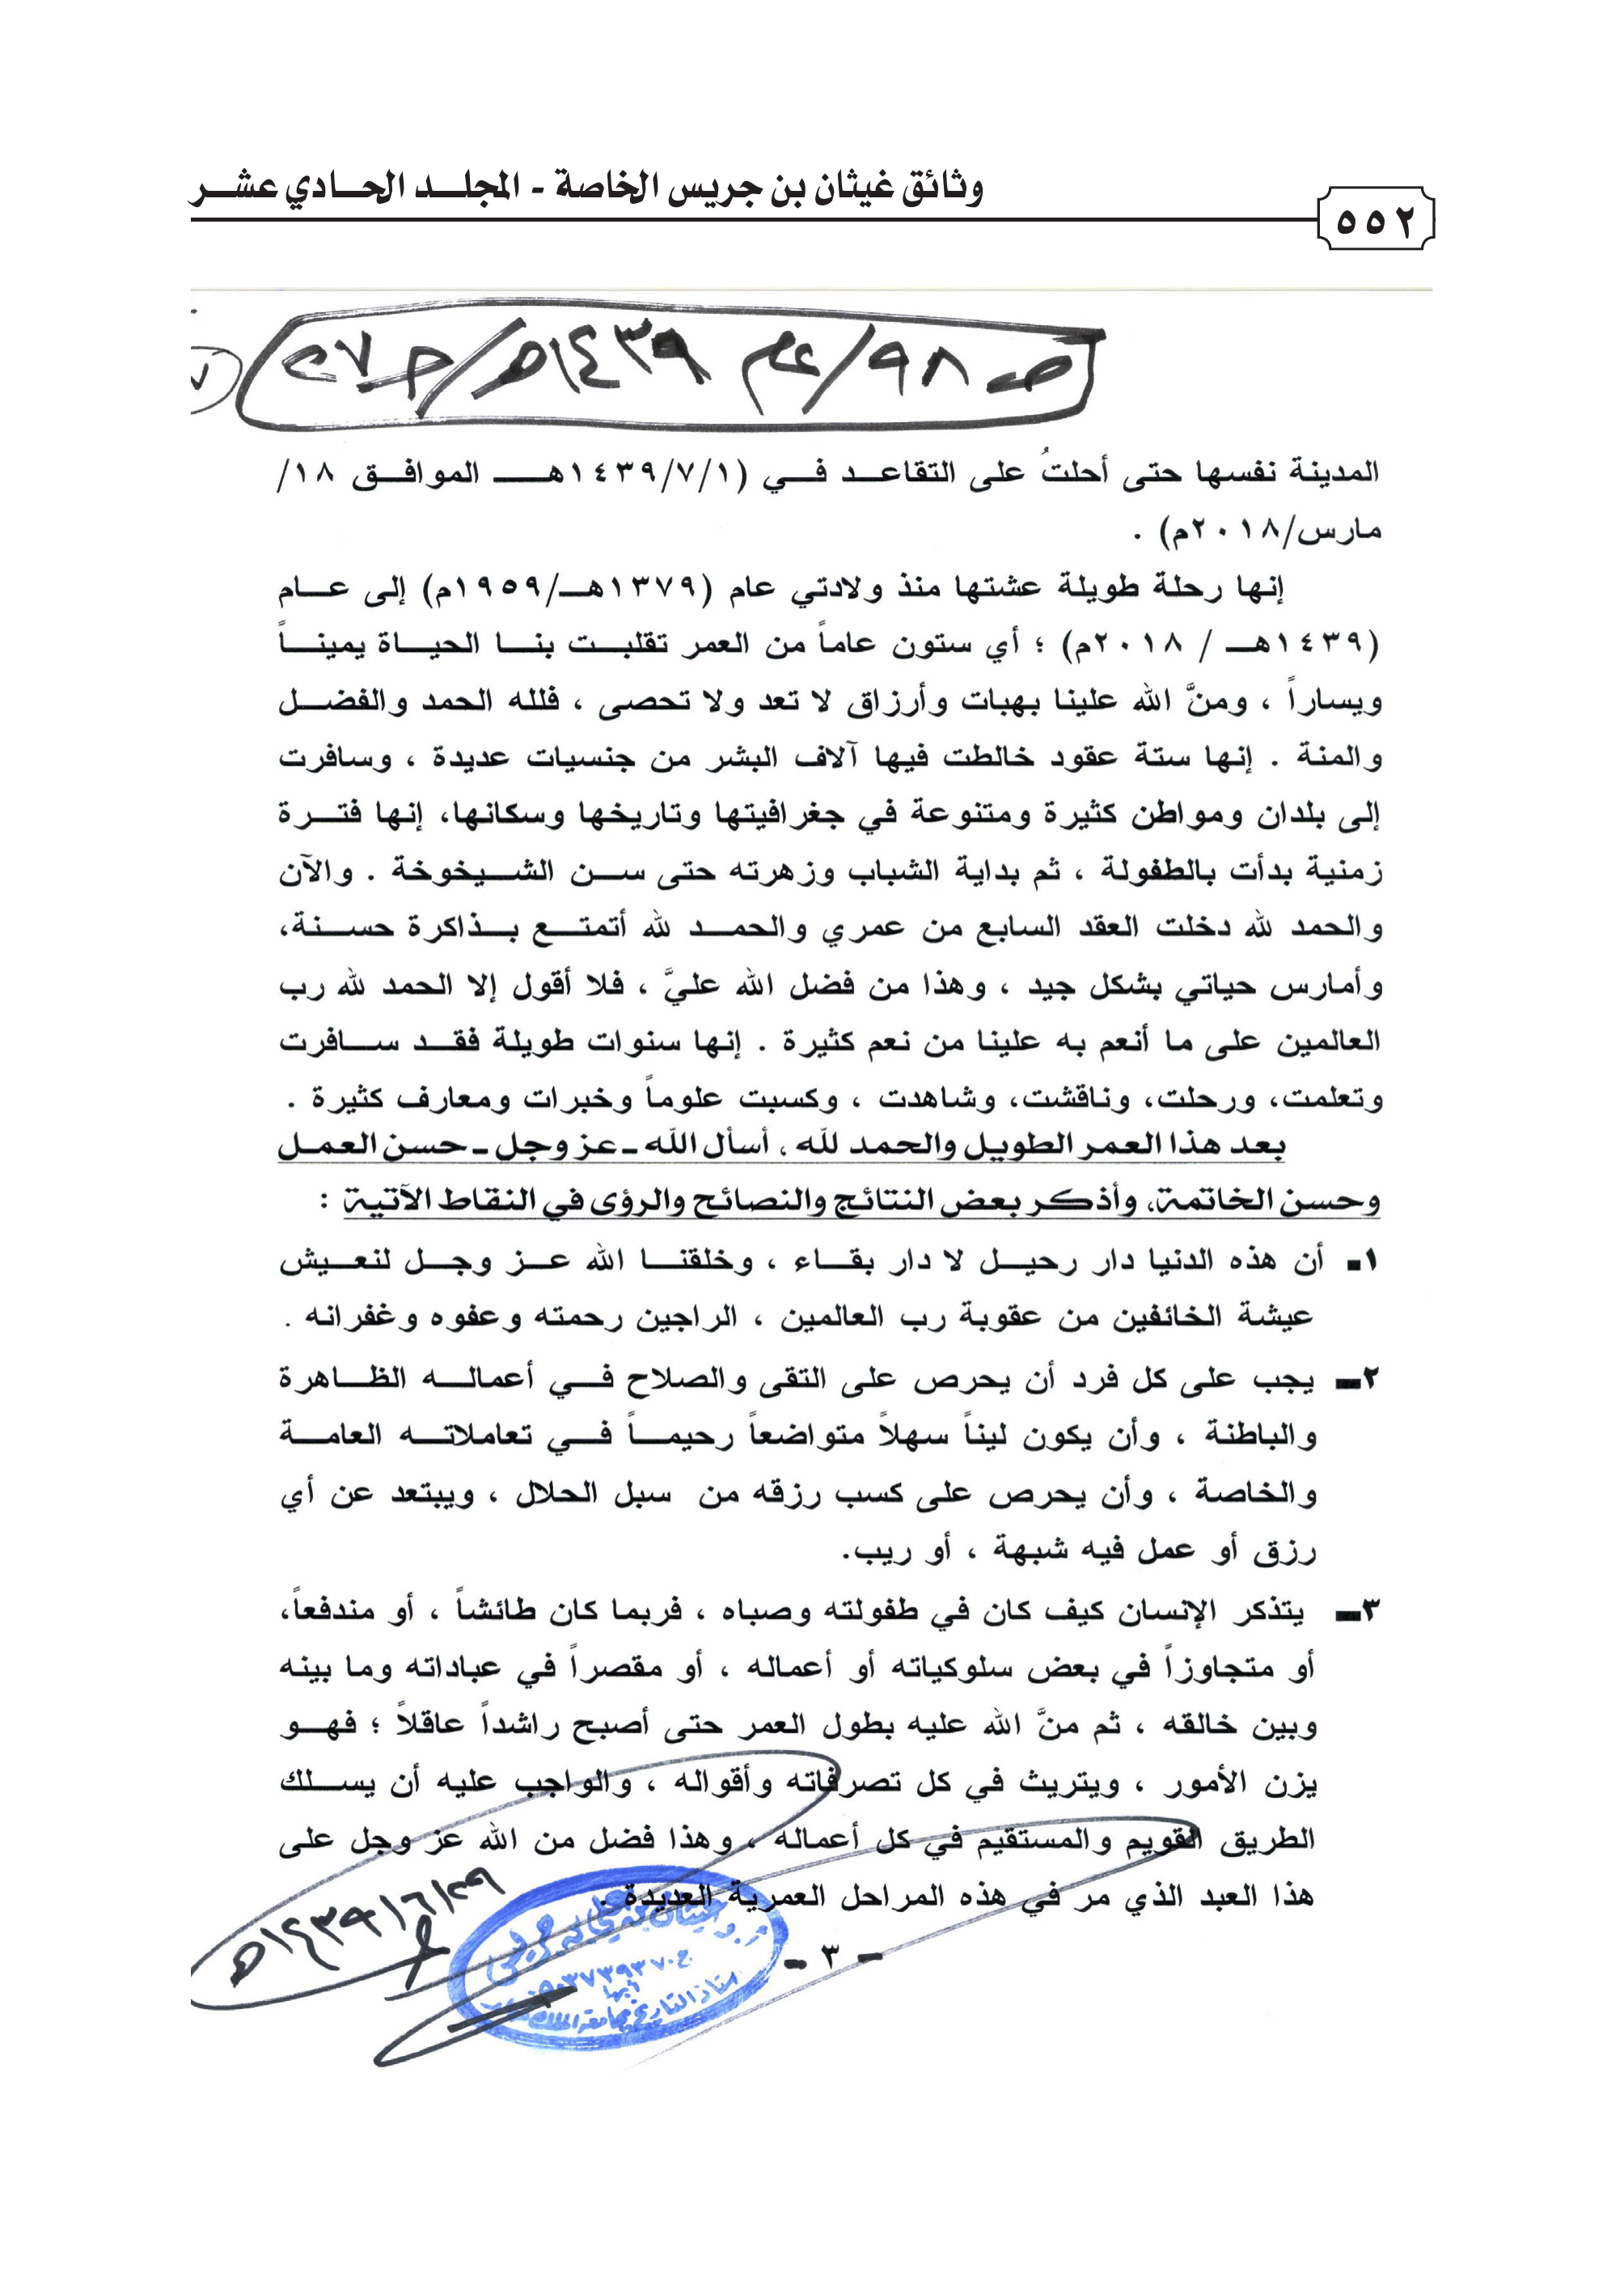 وثائق غيثان بن جريس الخاصة - المجلـــد الحـــادي عشـــر
٥٥٢
ص ٩٨/عام ١٤٣٩هـ/ج٢٧
المدينة نفسها حتى أحلتُ على التقاعد في (١٤٣٩/٧/١هـ الموافق ١٨/
مارس/٢٠١٨م) .
إنها رحلة طويلة عشتها منذ ولادتي عام (١٣٧٩هـ/١٩٥٩م) إلى عام
(١٤٣٩هـ / ٢٠١٨م) ؛ أي ستون عاماً من العمر تقلبت بنا الحياة يميناً
ويساراً ، ومنَّ الله علينا بهبات وأرزاق لا تعد ولا تحصى ، فلله الحمد والفضل
والمنة . إنها ستة عقود خالطت فيها آلاف البشر من جنسيات عديدة ، وسافرت
إلى بلدان ومواطن كثيرة ومتنوعة في جغرافيتها وتاريخها وسكانها، إنها فترة
زمنية بدأت بالطفولة ، ثم بداية الشباب وزهرته حتى سن الشيخوخة . والآن
والحمد لله دخلت العقد السابع من عمري والحمد لله أتمتع بذاكرة حسنة،
وأمارس حياتي بشكل جيد ، وهذا من فضل الله عليَّ ، فلا أقول إلا الحمد لله رب
العالمين على ما أنعم به علينا من نعم كثيرة . إنها سنوات طويلة فقد سافرت
وتعلمت، ورحلت، وناقشت، وشاهدت ، وكسبت علوماً وخبرات ومعارف كثيرة .
بعد هذا العمر الطويل والحمد لله ، أسأل الله ـ عز وجل ـ حسن العمل
وحسن الخاتمة، وأذكر بعض النتائج والنصائح والرؤى في النقاط الآتية :
١ـ أن هذه الدنيا دار رحيل لا دار بقاء ، وخلقنا الله عز وجل لنعيش
عيشة الخائفين من عقوبة رب العالمين ، الراجين رحمته وعفوه وغفرانه .
٢ـ يجب على كل فرد أن يحرص على التقى والصلاح في أعماله الظاهرة
والباطنة ، وأن يكون ليناً سهلاً متواضعاً رحيماً في تعاملاته العامة
والخاصة ، وأن يحرص على كسب رزقه من سبل الحلال ، ويبتعد عن أي
رزق أو عمل فيه شبهة ، أو ريب.
٣ـ يتذكر الإنسان كيف كان في طفولته وصباه ، فربما كان طائشاً ، أو مندفعاً،
أو متجاوزاً في بعض سلوكياته أو أعماله ، أو مقصراً في عباداته وما بينه
وبين خالقه ، ثم منَّ الله عليه بطول العمر حتى أصبح راشداً عاقلاً ؛ فهو
يزن الأمور ، ويتريث في كل تصرفاته وأقواله ، والواجب عليه أن يسلك
الطريق القويم والمستقيم في كل أعماله ، وهذا فضل من الله عز وجل على
هذا العبد الذي مر في هذه المراحل العمرية العديدة .
١٤٣٩/٦/٢٩هـ
أبها
أستاذ التاريخ بجامعة الملك
- ٣ -